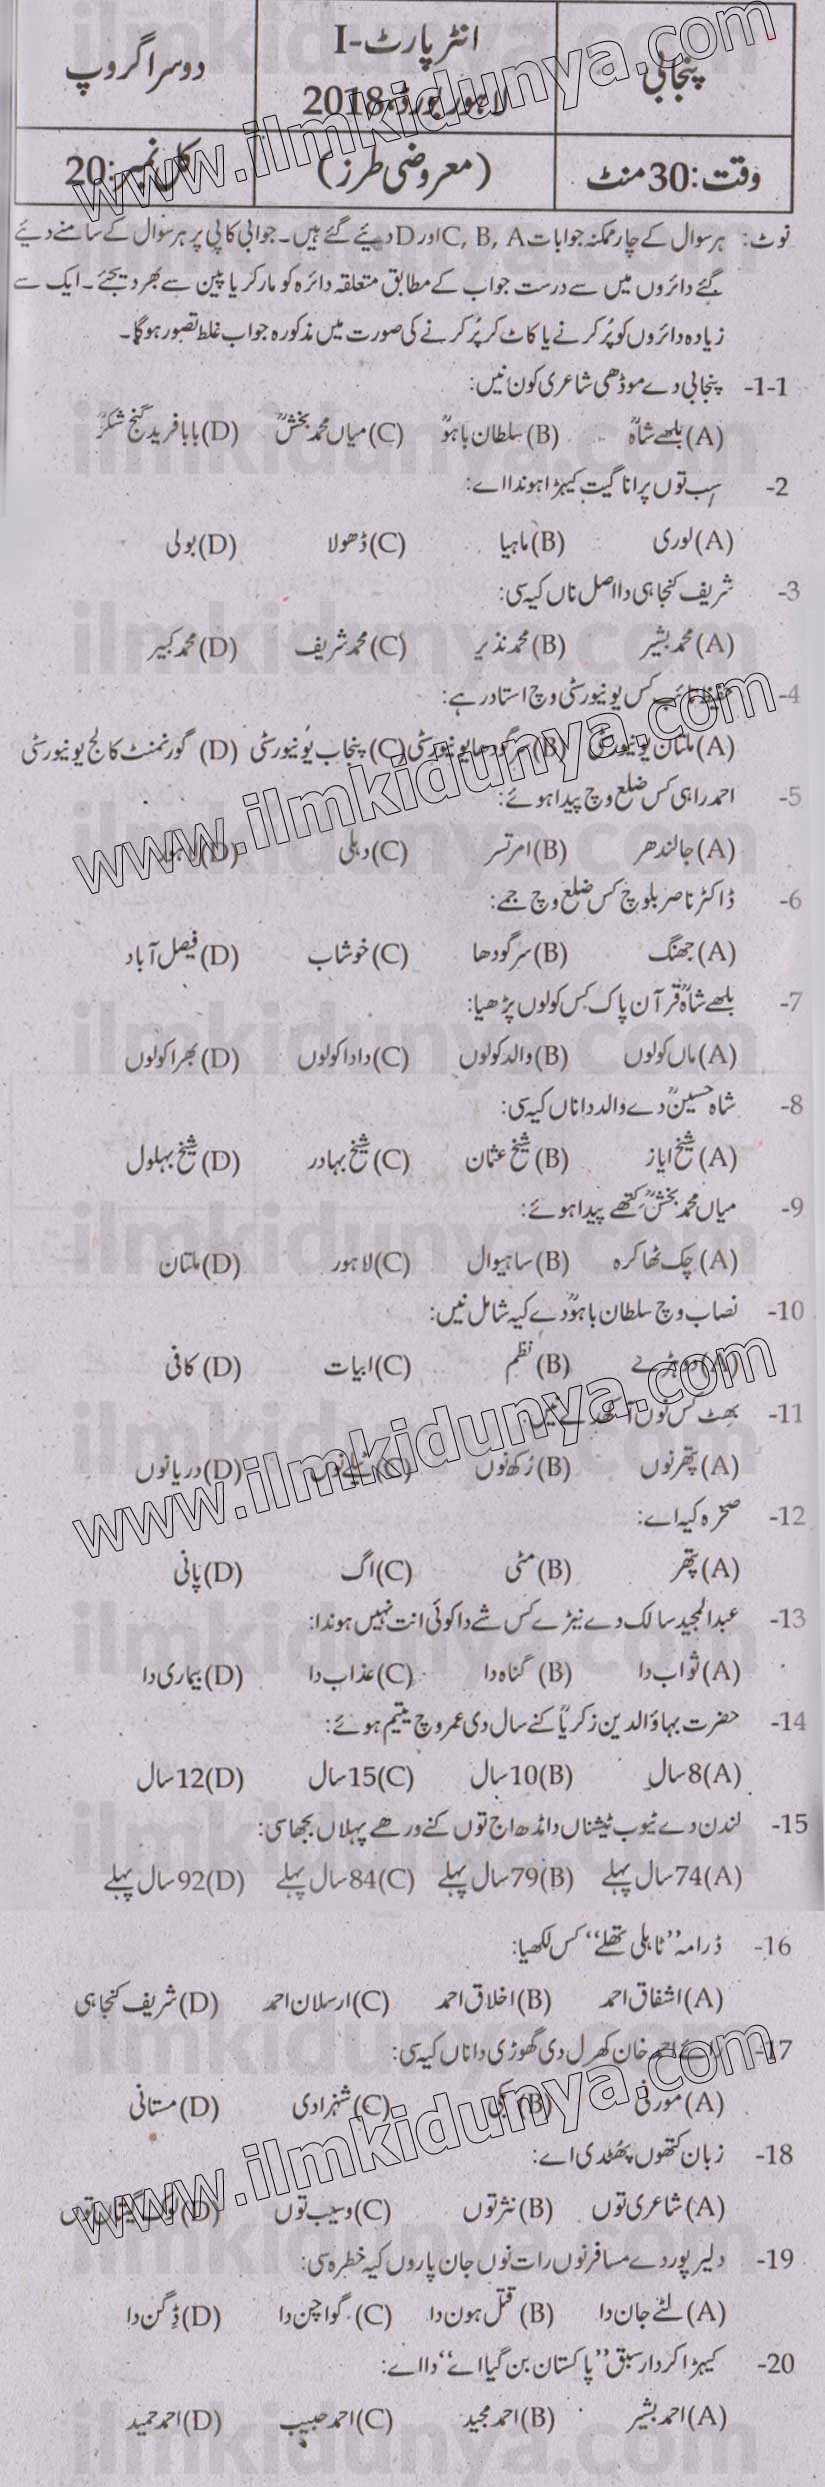 پنجابی
انٹر پارٹ-I
لاہور بورڈ، 2018
دوسرا گروپ
وقت: 30 منٹ
(معروضی طرز)
کل نمبر: 20
نوٹ: ہر سوال کے چار ممکنہ جوابات C, B, A اور D دیئے گئے ہیں۔ جوابی کاپی پر ہر سوال کے سامنے دیئے
گئے دائروں میں سے درست جواب کے مطابق متعلقہ دائرہ کو مارکر یا پین سے بھر دیجئے۔ ایک سے
زیادہ دائروں کو پُر کرنے یا کاٹ کر پُر کرنے کی صورت میں مذکورہ جواب غلط تصور ہوگا۔
1-1- پنجابی دے موڈھی شاعری کون نیں:
(A) بلھے شاہؒ (B) سلطان باہوؒ (C) میاں محمد بخشؒ (D) بابا فرید گنج شکرؒ
2- سب توں پرانا گیت کیہڑا ہوندا اے:
(A) لوری (B) ماہیا (C) ڈھولا (D) بولی
3- شریف کنجاہی دا اصل ناں کیہ سی:
(A) محمد بشیر (B) محمد نذیر (C) محمد شریف (D) محمد کبیر
4- حفیظ تائب کس یونیورسٹی وچ استاد رہے:
(A) ملتان یونیورسٹی (B) سرگودھا یونیورسٹی (C) پنجاب یونیورسٹی (D) گورنمنٹ کالج یونیورسٹی
5- احمد راہی کس ضلع وچ پیدا ہوئے:
(A) جالندھر (B) امرتسر (C) دہلی (D) لاہور
6- ڈاکٹر ناصر بلوچ کس ضلع وچ جمے:
(A) جھنگ (B) سرگودھا (C) خوشاب (D) فیصل آباد
7- بلھے شاہؒ قرآن پاک کس کولوں پڑھیا:
(A) ماں کولوں (B) والد کولوں (C) دادا کولوں (D) بھرا کولوں
8- شاہ حسینؒ دے والد دا ناں کیہ سی:
(A) شیخ ایاز (B) شیخ عثمان (C) شیخ بہادر (D) شیخ بہلول
9- میاں محمد بخشؒ کتھے پیدا ہوئے:
(A) چک ٹھاکرہ (B) ساہیوال (C) لاہور (D) ملتان
10- نصاب وچ سلطان باہوؒ دے کیہ شامل نیں:
(A) دوہڑے (B) نظم (C) ابیات (D) کافی
11- بھٹ کس نوں آکھدے نیں:
(A) پتھر نوں (B) رُکھ نوں (C) ٹیلے نوں (D) دریا نوں
12- صخرہ کیہ اے:
(A) پتھر (B) مٹی (C) اگ (D) پانی
13- عبدالمجید سالک دے نیڑے کس شے دا کوئی انت نہیں ہوندا:
(A) ثواب دا (B) گناہ دا (C) عذاب دا (D) بیماری دا
14- حضرت بہاؤالدین زکریاؒ کنے سال دی عمر وچ یتیم ہوئے:
(A) 8 سال (B) 10 سال (C) 15 سال (D) 12 سال
15- لندن دے ٹیوب ٹیشناں دا مڈھ اج توں کنے ورھے پہلاں بجھا سی:
(A) 74 سال پہلے (B) 79 سال پہلے (C) 84 سال پہلے (D) 92 سال پہلے
16- ڈرامہ "ٹاہلی تھلے" کس لکھیا:
(A) اشفاق احمد (B) اخلاق احمد (C) ارسلان احمد (D) شریف کنجاہی
17- رائے احمد خان کھرل دی گھوڑی دا ناں کیہ سی:
(A) مورنی (B) لکی (C) شہزادی (D) مستانی
18- زبان کتھوں پھٹدی اے:
(A) شاعری توں (B) نثر توں (C) وسیب توں (D) لوک گیتاں توں
19- دلیر پور دے مسافر نوں رات نوں جان پاروں کیہ خطرہ سی:
(A) لٹے جان دا (B) قتل ہون دا (C) گواچن دا (D) ڈگن دا
20- کیہڑا کردار سبق "پاکستان بن گیا اے" دا اے:
(A) احمد بشیر (B) احمد مجید (C) احمد حبیب (D) احمد حمید
www.ilmkidunya.com
www.ilmkidunya.com
www.ilmkidunya.com
www.ilmkidunya.com